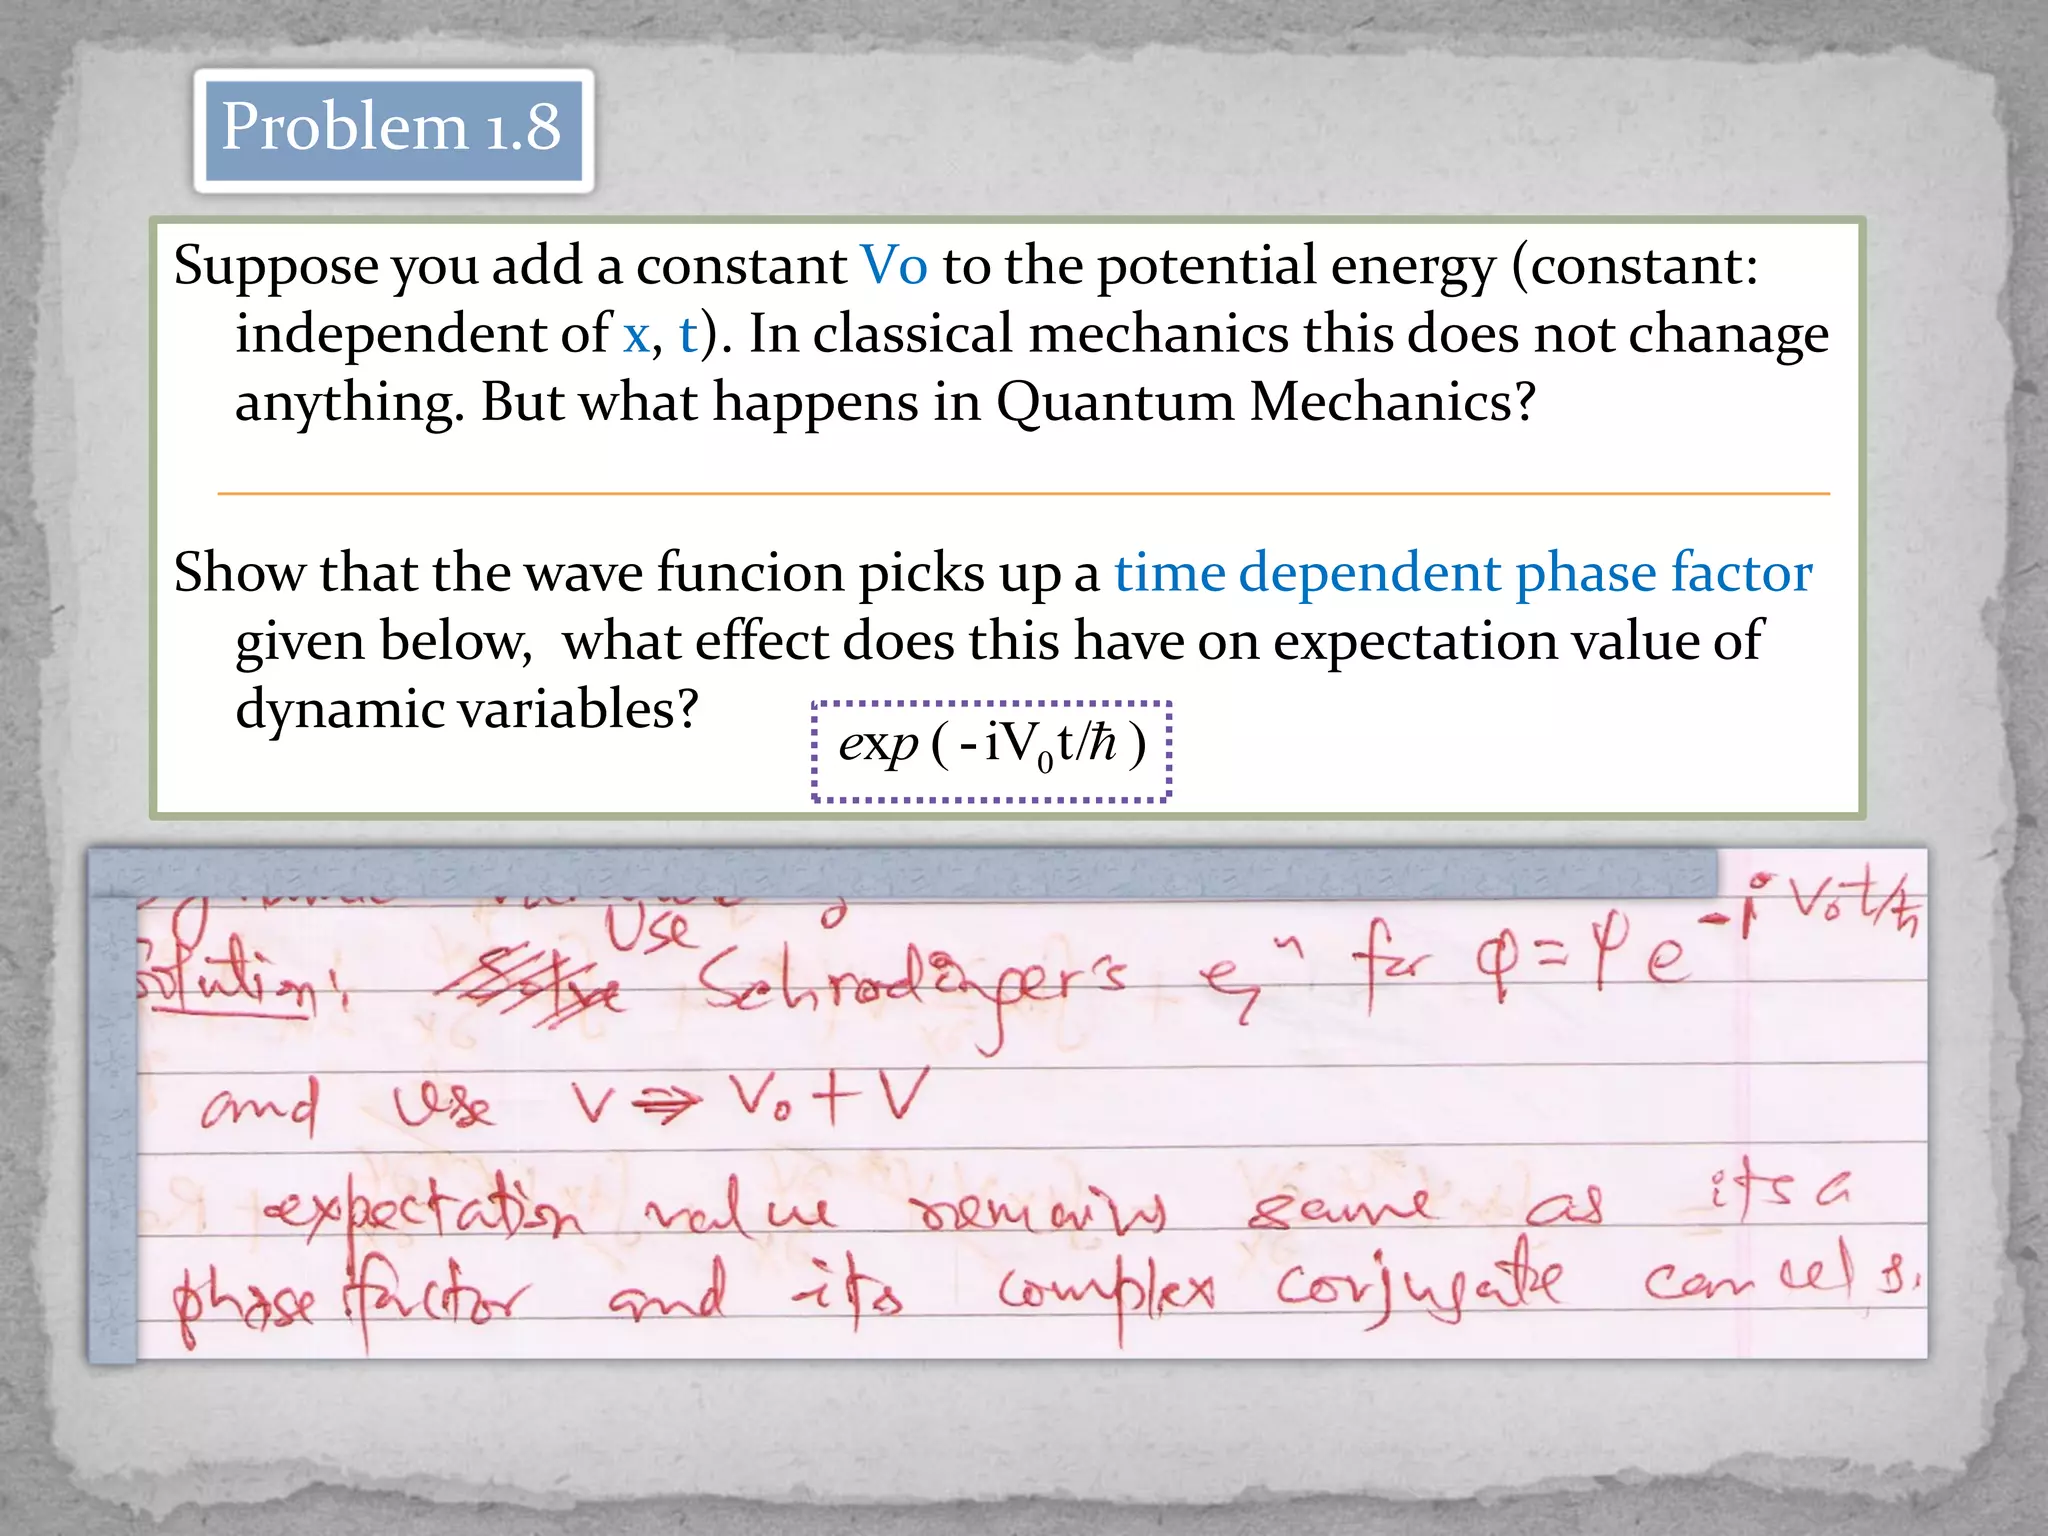 Problem 1.8
Suppose you add a constant Vo to the potential energy (constant:
independent of x, t). In classical mechanics this does not chanage
anything. But what happens in Quantum Mechanics?
Show that the wave funcion picks up a time dependent phase factor
given below, what effect does this have on expectation value of
dynamic variables?
exp ( -iV₀t/ℏ )
Solution: Use Schrodinger's eqⁿ for φ = Ψ e^{-iV₀t/ℏ}
and use V ⇒ V₀ + V
expectation value remains same as its a
phase factor and its complex conjugate cancels.